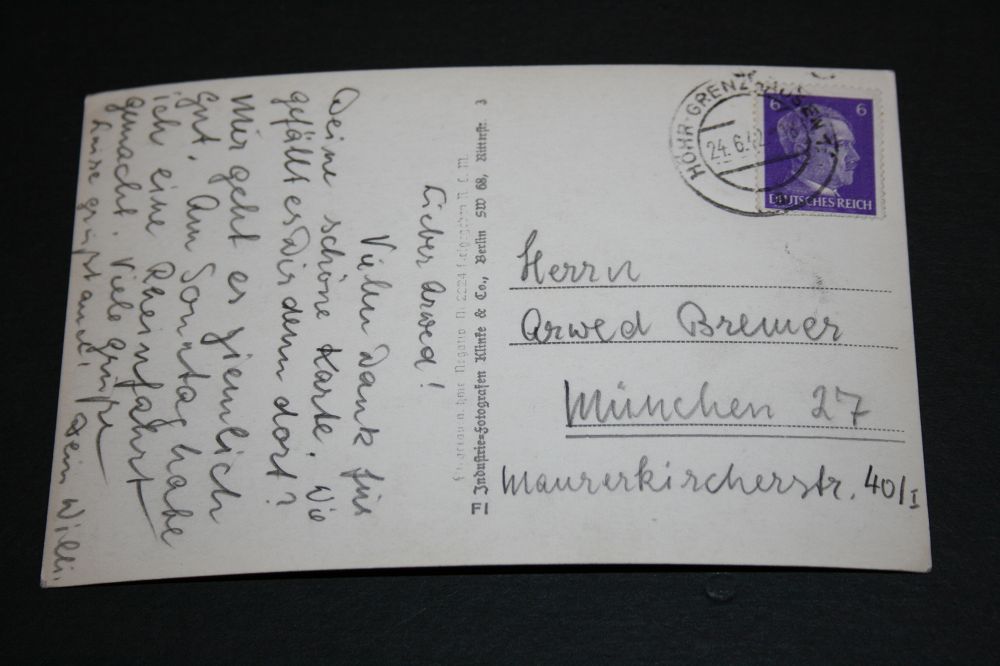 Lieber Arwed!
Vielen Dank für
Deine schöne Karte. Wie
gefällt es Dir denn dort?
Mir geht es ziemlich
gut. Am Sonntag habe
ich eine Rheinfahrt
gemacht. Viele Grüße
Dein Willi.
Luise grüßt auch!
Industrie=Fotografen Klinke & Co., Berlin SW 68, Ritterstr. 3
HÖHR-GRENZHAUSEN 1
24.6.42
6 6
DEUTSCHES REICH
Herrn
Arwed Bremer
München 27
Mauerkircherstr. 40/I